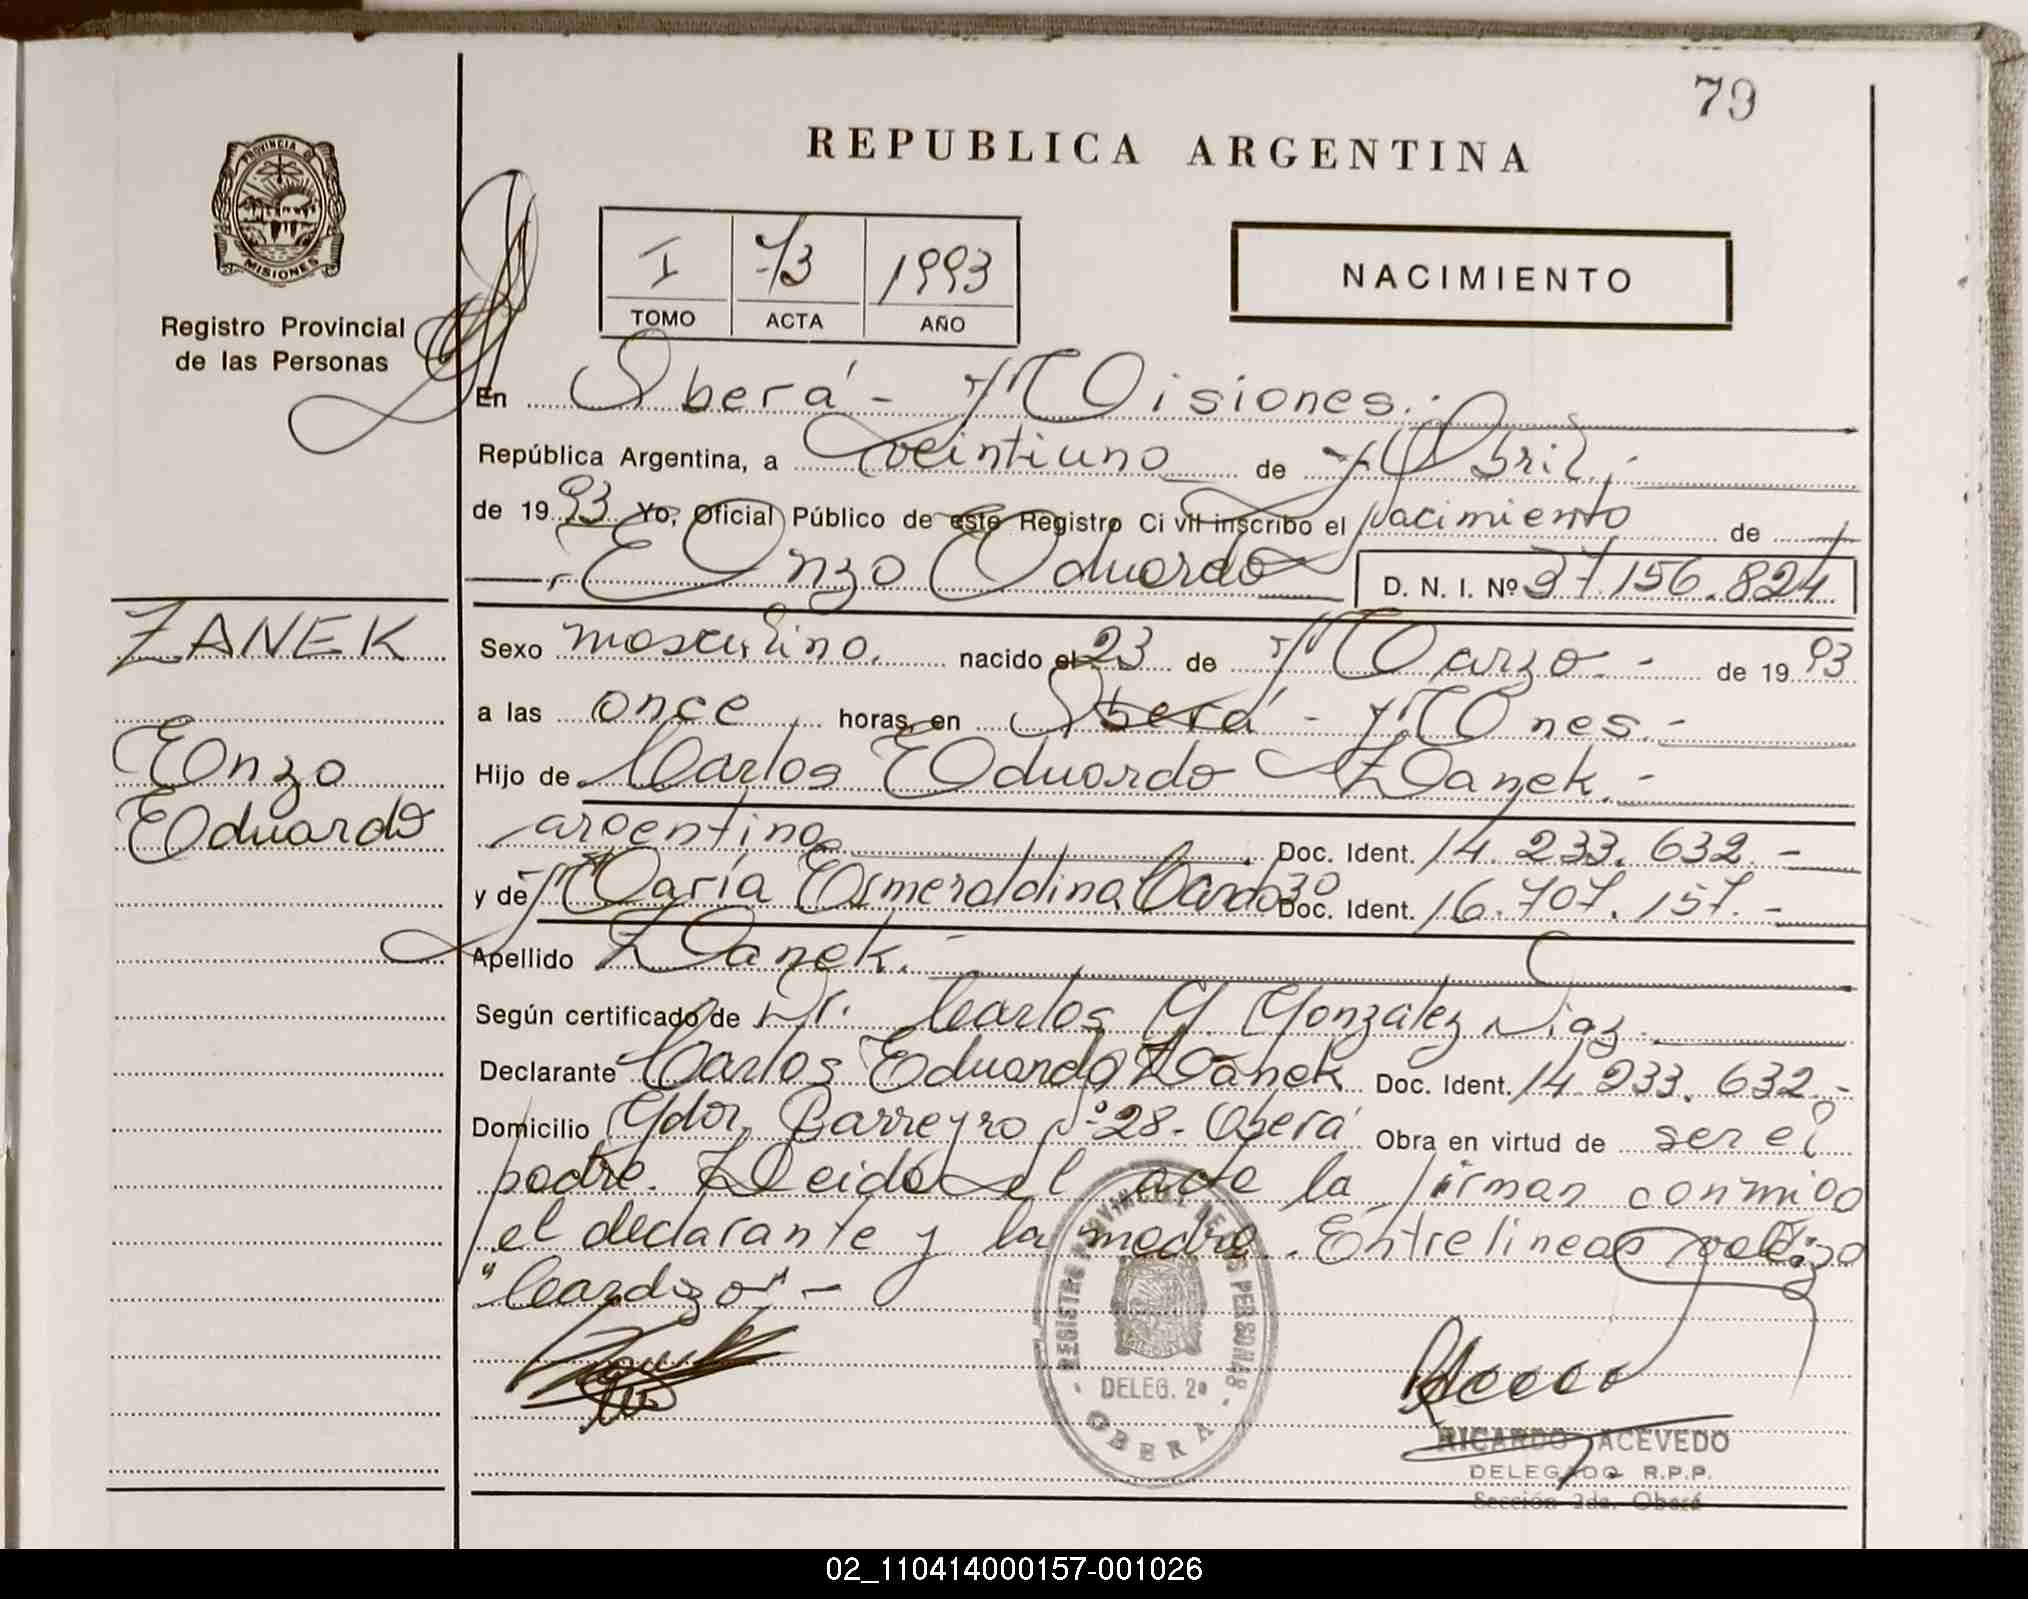 79
REPUBLICA ARGENTINA
PROVINCIA D MISIONES
Registro Provincial
de las Personas
I 73 1993
TOMO ACTA AÑO
NACIMIENTO
En Oberá - Misiones.
República Argentina, a veintiuno de Abril,
de 1993 Yo, Oficial Público de este Registro Civil inscribo el Nacimiento de
Enzo Eduardo D. N. I. Nº 37.156.824
ZANEK
Enzo
Eduardo
Sexo masculino. nacido el 23 de Marzo - de 1993
a las once horas, en Oberá - Mnes. -
Hijo de Carlos Eduardo Zanek. -
argentino Doc. Ident. 14.233.632. -
y de María Esmeraldina Cardozo Doc. Ident. 16.707.157. -
Apellido Zanek. -
Según certificado de Dr. Carlos G. González Diaz
Declarante Carlos Eduardo Zanek Doc. Ident. 14.233.632. -
Domicilio Gdor. Barreyro Nº 28 - Oberá Obra en virtud de ser el
padre. Leida el acta la firman conmigo
el declarante y la madre. Entrelineas
"Cardozo" -
REGISTRO PROVINCIAL DE LAS PERSONAS
DELEG. 2ª
OBERA
RICARDO ACEVEDO
DELEGADO R.P.P.
Sección 2da. Oberá
02_110414000157-001026